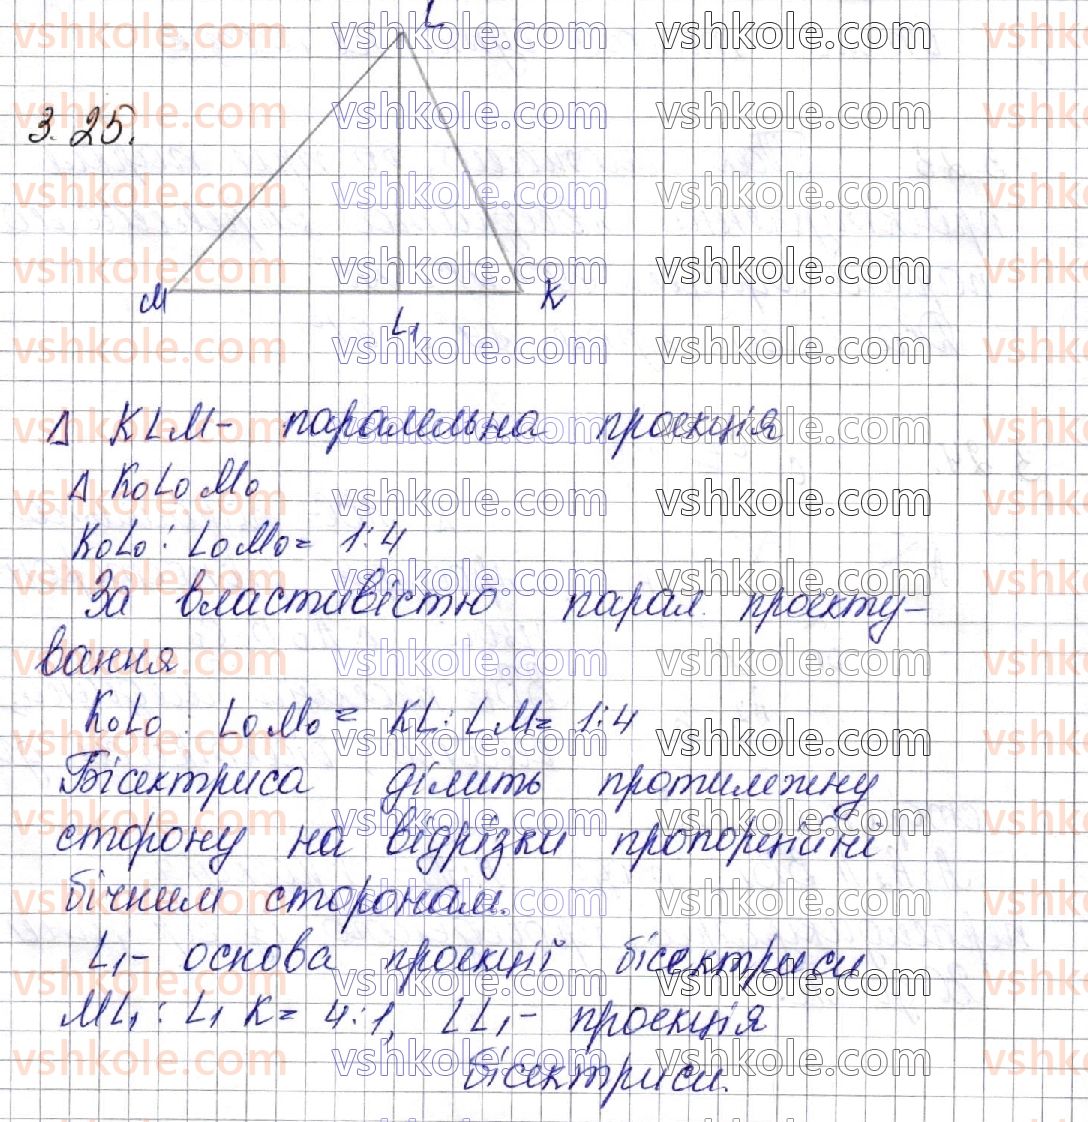 L
3.25.
M
K
L₁
Δ KLM - паралельна проекція
Δ K₀L₀M₀
K₀L₀ : L₀M₀ = 1:4
За властивістю парал. проекту-
вання
K₀L₀ : L₀M₀ = KL : LM = 1:4
Бісектриса ділить протилежну
сторону на відрізки пропорційні
бічним сторонам.
L₁ - основа проекції бісектриси
ML₁ : L₁K = 4:1, LL₁ - проекція
бісектриси.